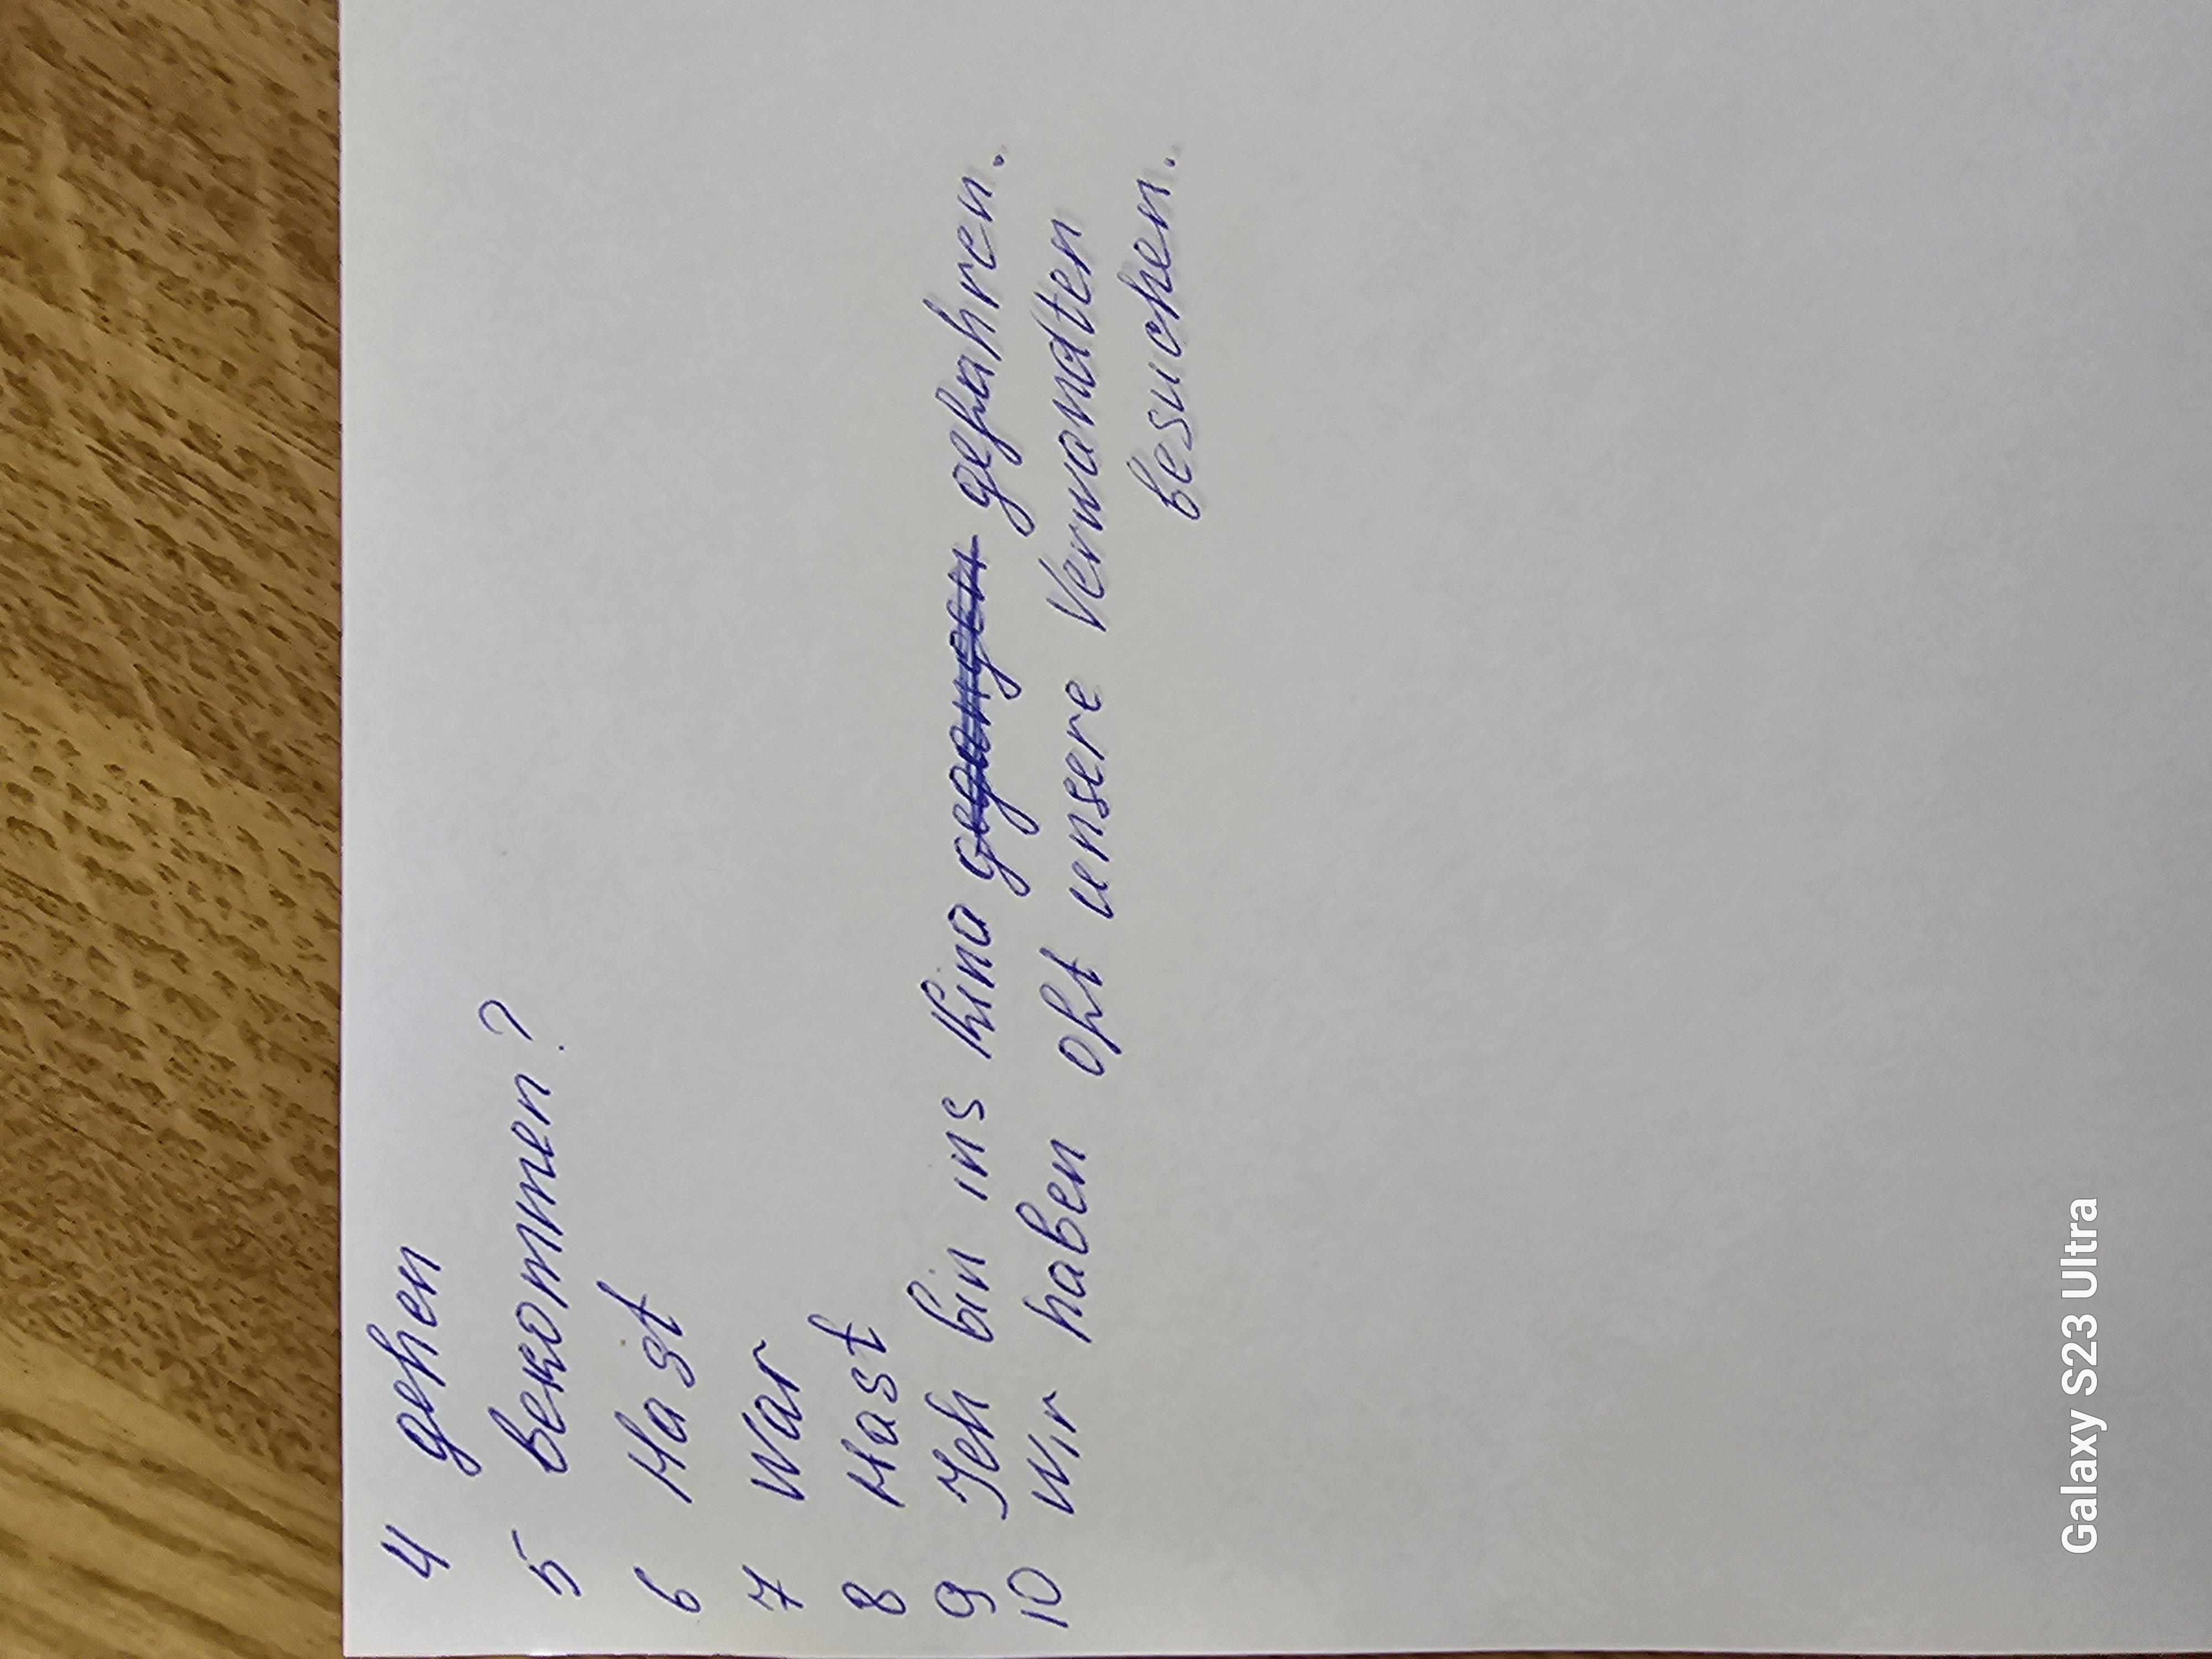 4 gehen
5 bekommen?
6 Hast
7 War
8 Hast
9 Ich bin ins Kino gegangen gefahren.
10 Wir haben oft unsere Verwandten
besuchen.
Galaxy S23 Ultra